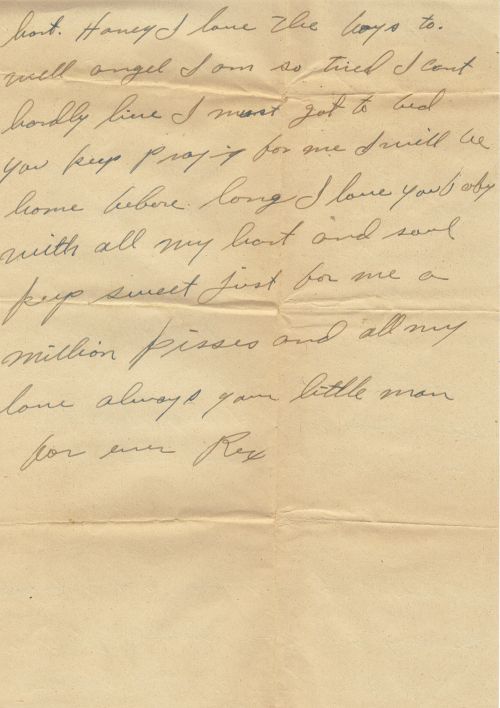 hart. Honey I love the boys to.
well angel I am so tired I cant
hardly live I must got to bed
you keep praying for me I will be
home before long I love you baby
with all my hart and soul
keep sweet just for me a
million kisses and all my
love always your little man
for ever Rex